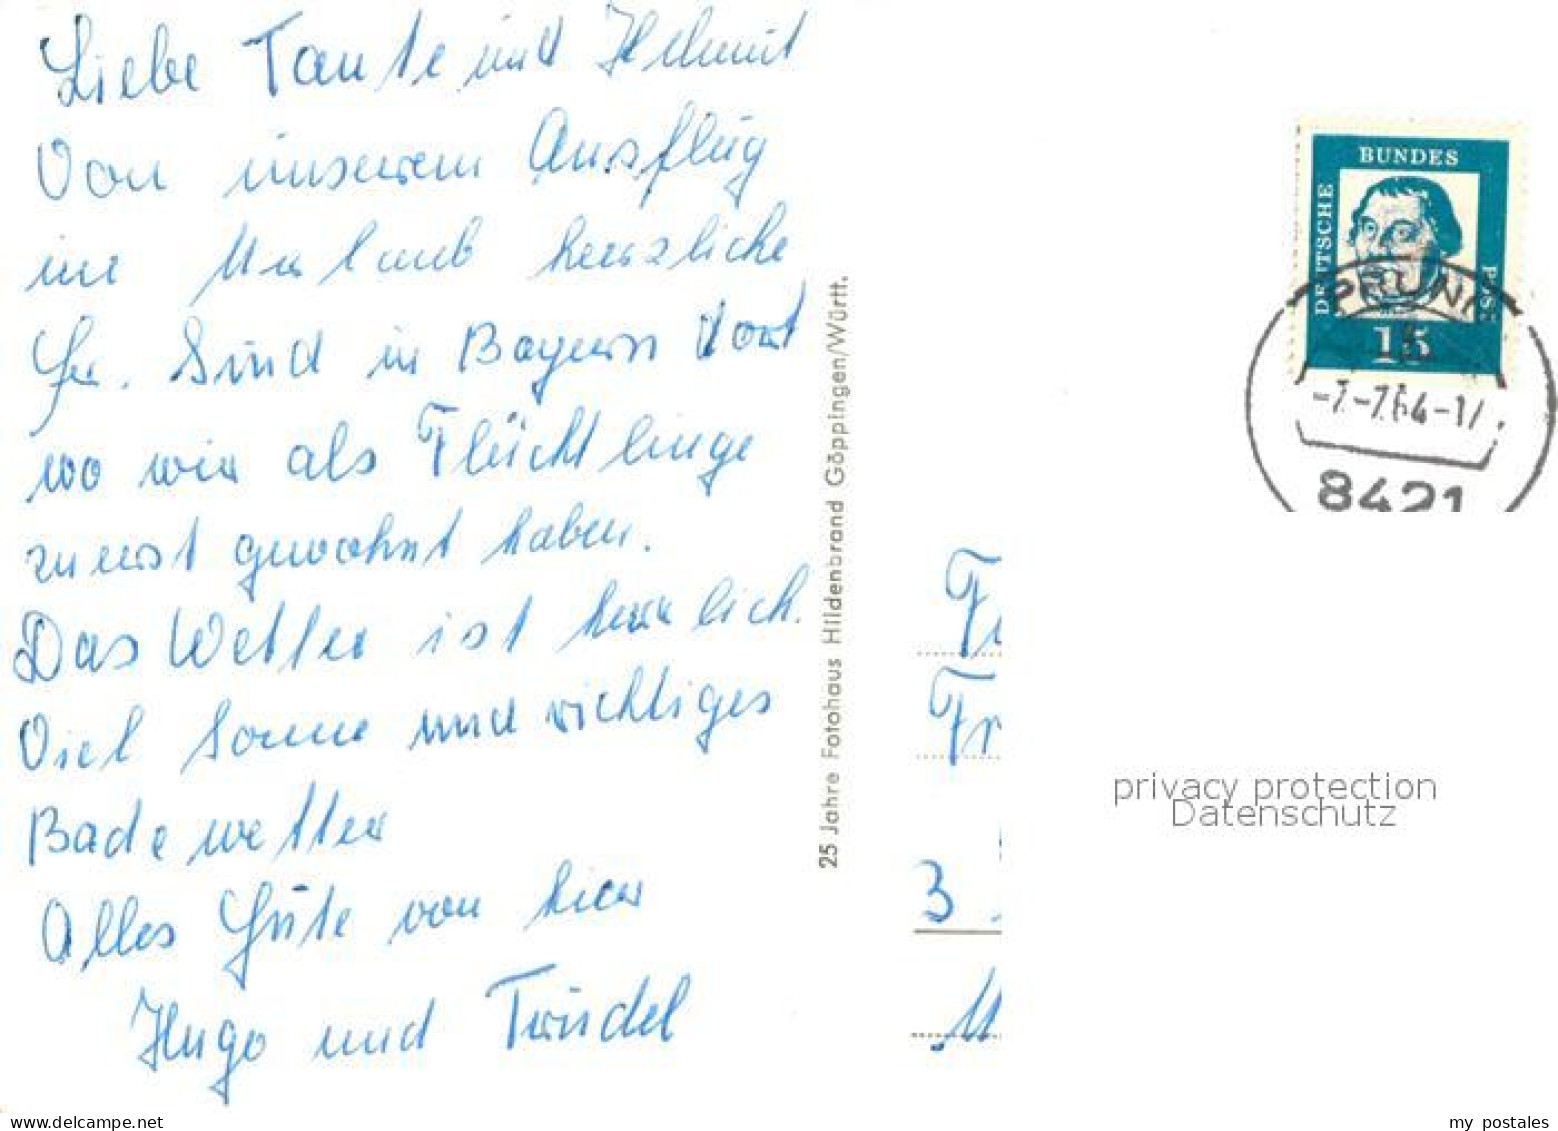 Liebe Tante und Helmut
Von unserem Ausflug
im Urlaub herzliche
Gr. Sind in Bayern dort
wo wir als Flüchtlinge
zuerst gewohnt haben.
Das Wetter ist herrlich.
Viel Sonne und richtiges
Badewetter
Alles Gute von hier
Hugo und Trudel
25 Jahre Fotohaus Hildenbrand Göppingen/Württ.
DEUTSCHE
BUNDES
POST
15
PRUNN
-7.-7.64-17
8421
3
privacy protection
Datenschutz
delcampe.net
my postales